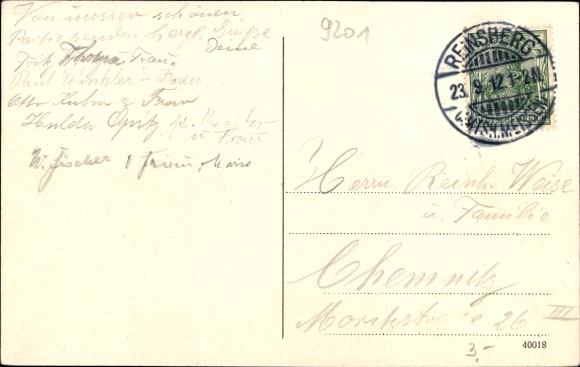 Von unsrer schönen
Partie senden herzl. Grüße
Deine
Fritz Thoma u. Frau.
Paul Winkler u. Frau.
Otto Kuhn & Frau
Hulda Opitz
u Frau
W. Fischer
9201
REINSBERG
23.9.12.1-2N.
Herrn Reinh. Weise
u. Familie
Chemnitz
Moritzstraße 26 III
40018
3,-